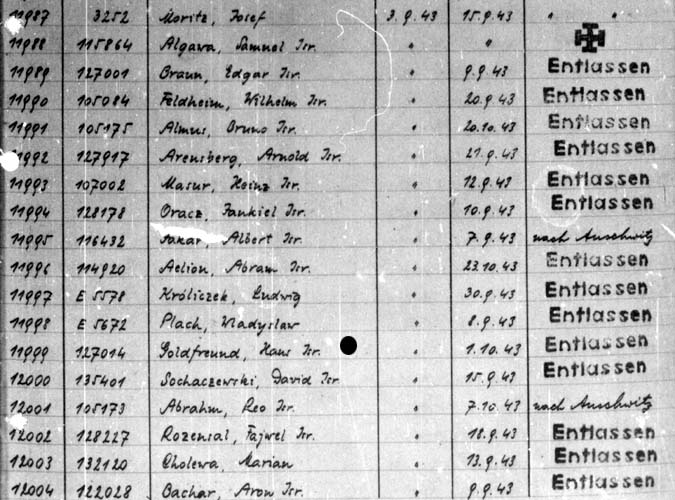 11987 3252 Moritz, Josef 3.9.43 15.9.43 " "
11988 115864 Algawa, Samuel Isr. " "
11989 127001 Braun, Edgar Isr. " 9.9.43 Entlassen
11990 105084 Feldheim, Wilhelm Isr. " 20.9.43 Entlassen
11991 105175 Almus, Bruno Isr. " 20.10.43 Entlassen
11992 127917 Arensberg, Arnold Isr. " 21.9.43 Entlassen
11993 107002 Masur, Heinz Isr. " 12.9.43 Entlassen
11994 128178 Oracz, Jankiel Isr. " 10.9.43 Entlassen
11995 116432 Albert Isr. " 7.9.43 nach Auschwitz
11996 114920 Aelion, Abram Isr. " 23.10.43 Entlassen
11997 E 5578 Króliczek, Ludwig " 30.9.43 Entlassen
11998 E 5672 Plach, Wladyslaw " 8.9.43 Entlassen
11999 127014 Goldfreund, Hans Isr. " 1.10.43 Entlassen
12000 135401 Sochaczewski, David Isr. " 15.9.43 Entlassen
12001 105173 Abrahm, Leo Isr. " 7.10.43 nach Auschwitz
12002 128227 Rozensal, Fajwel Isr. " 18.9.43 Entlassen
12003 132120 Cholewa, Marian " 13.9.43 Entlassen
12004 122028 Bachar, Aron Isr. " 9.9.43 Entlassen